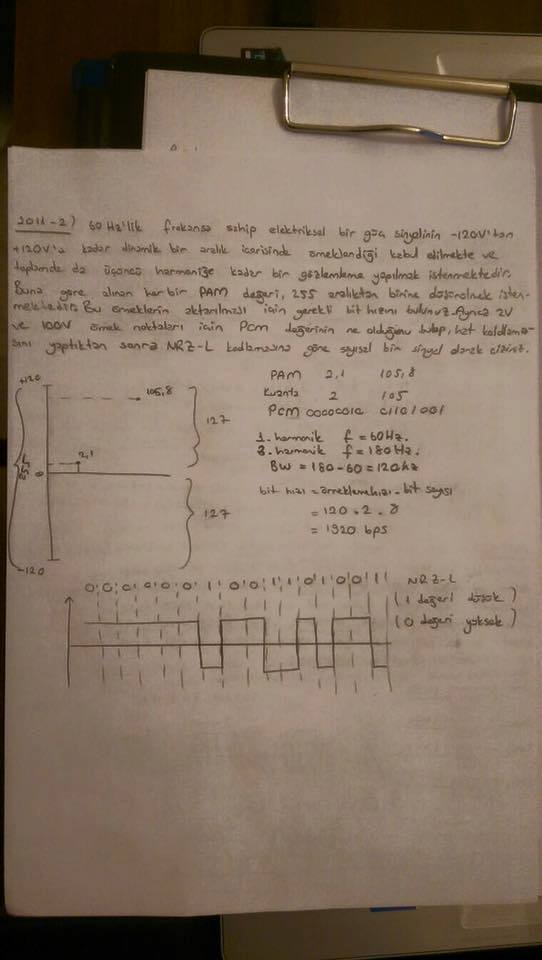 2011-2) 60 Hz'lik frekansa sahip elektriksel bir güç sinyalinin -120V'tan
+120V'a kadar dinamik bir aralık içerisinde örneklendiği kabul edilmekte ve
toplamda da üçüncü harmoniğe kadar bir gözlemleme yapılmak istenmektedir.
Buna göre alınan her bir PAM değeri, 255 aralıktan birine düşürülmek isten-
mektedir. Bu örneklerin aktarılması için gerekli bit hızını bulunuz. Ayrıca 2V
ve 100V örnek noktaları için Pcm değerinin ne olduğunu bulup, hat kodlama-
sını yaptıktan sonra NRZ-L kodlamasına göre sayısal bir sinyal olarak çiziniz.
+120
105,8
127
2,1
255
0
127
-120
PAM 2,1 105,8
Kuanta 2 105
PCM 00000010 01101001
1. harmonik f = 60Hz.
3. harmonik f = 180Hz.
BW = 180-60 = 120hz
bit hızı = örnekleme hızı . bit sayısı
= 120.2.8
= 1920 bps
0 0 0 0 0 0 1 0 0 1 1 0 1 0 0 1
NRZ-L
(1 değeri düşük)
(0 değeri yüksek)